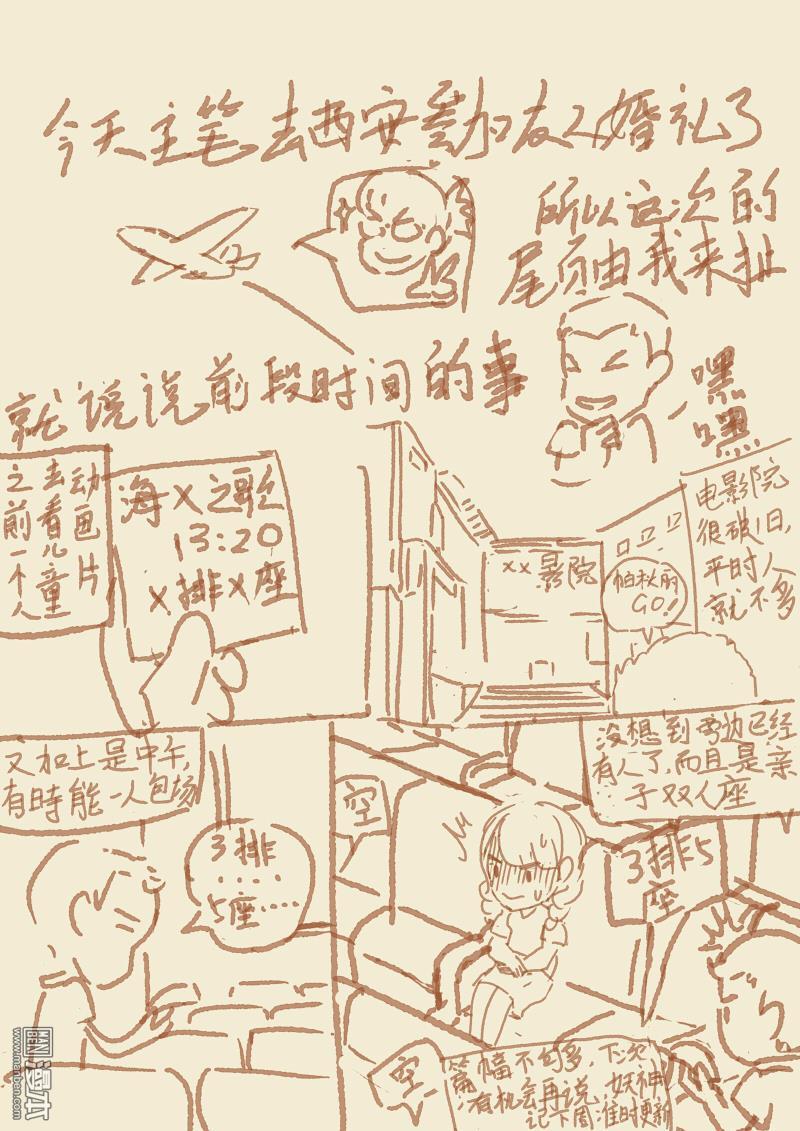 今天主笔去西安参加友人婚礼了
所以这次的
尾页由我来扯
就说说前段时间的事
嘿
嘿
之前一个人
去看儿童
动画片
海X之歌
13:20
X排X座
xx影院
帕秋丽
GO!
电影院
很破旧,
平时人
就不多
又加上是中午,
有時能一人包场
3排
....
5座.....
没想到旁边已经
有人了,而且是亲
子双人座
空
3排5
座
空
篇幅不够多,下次
有机会再说,妖神
记下周准时更新
漫本
www.manben.com